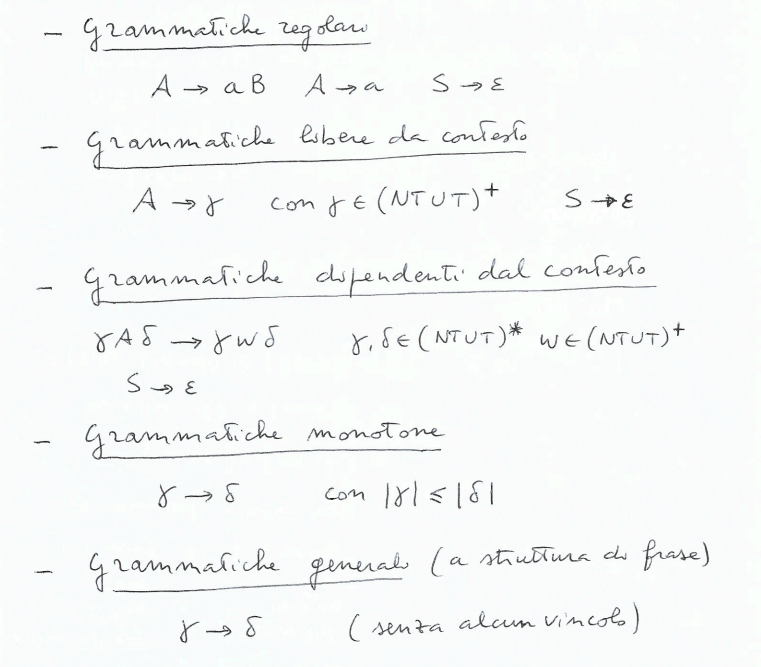 - Grammatiche regolari
A → aB A → a S → ε
- Grammatiche libere da contesto
A → γ con γ ∈ (NT ∪ T)⁺ S → ε
- Grammatiche dipendenti dal contesto
γAδ → γwδ γ, δ ∈ (NT ∪ T)* w ∈ (NT ∪ T)⁺
S → ε
- Grammatiche monotone
γ → δ con |γ| ≤ |δ|
- Grammatiche generali (a struttura di frase)
γ → δ (senza alcun vincolo)